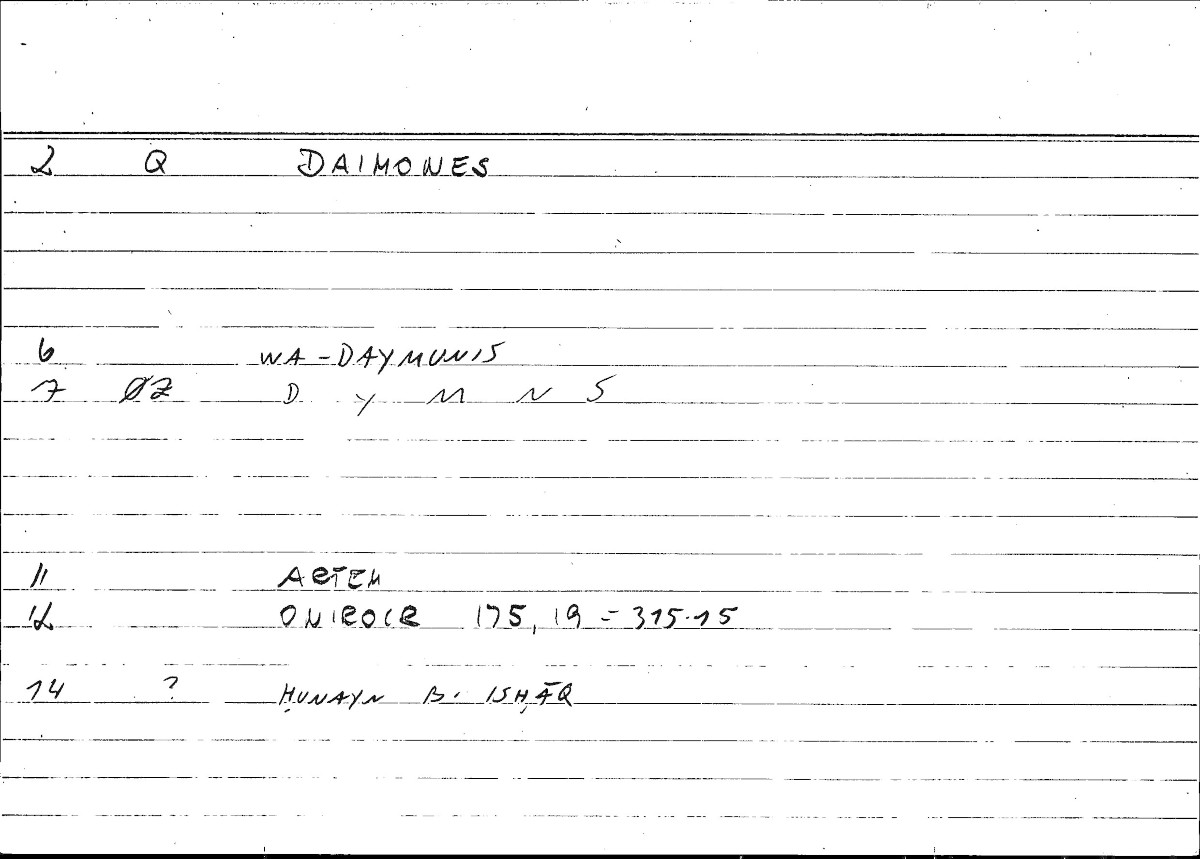 2 Q DAIMONES
6 WA-DAYMUNIS
7 ØZ D Y M N S
11 ARTEM
12 ONIROCR 175, 19 = 315.15
14 ? ḤUNAYN B. ISḤĀQ